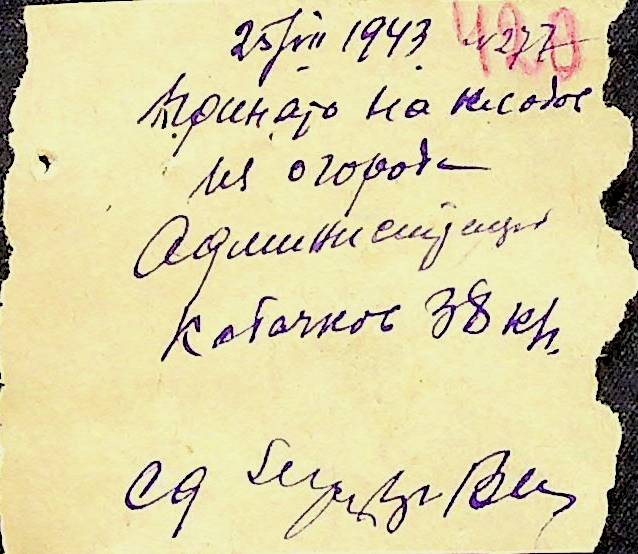 25/VII 1943 №277 420
Принято на кладов
из огорода
Администрации
кабачков 38 кг.
Сд